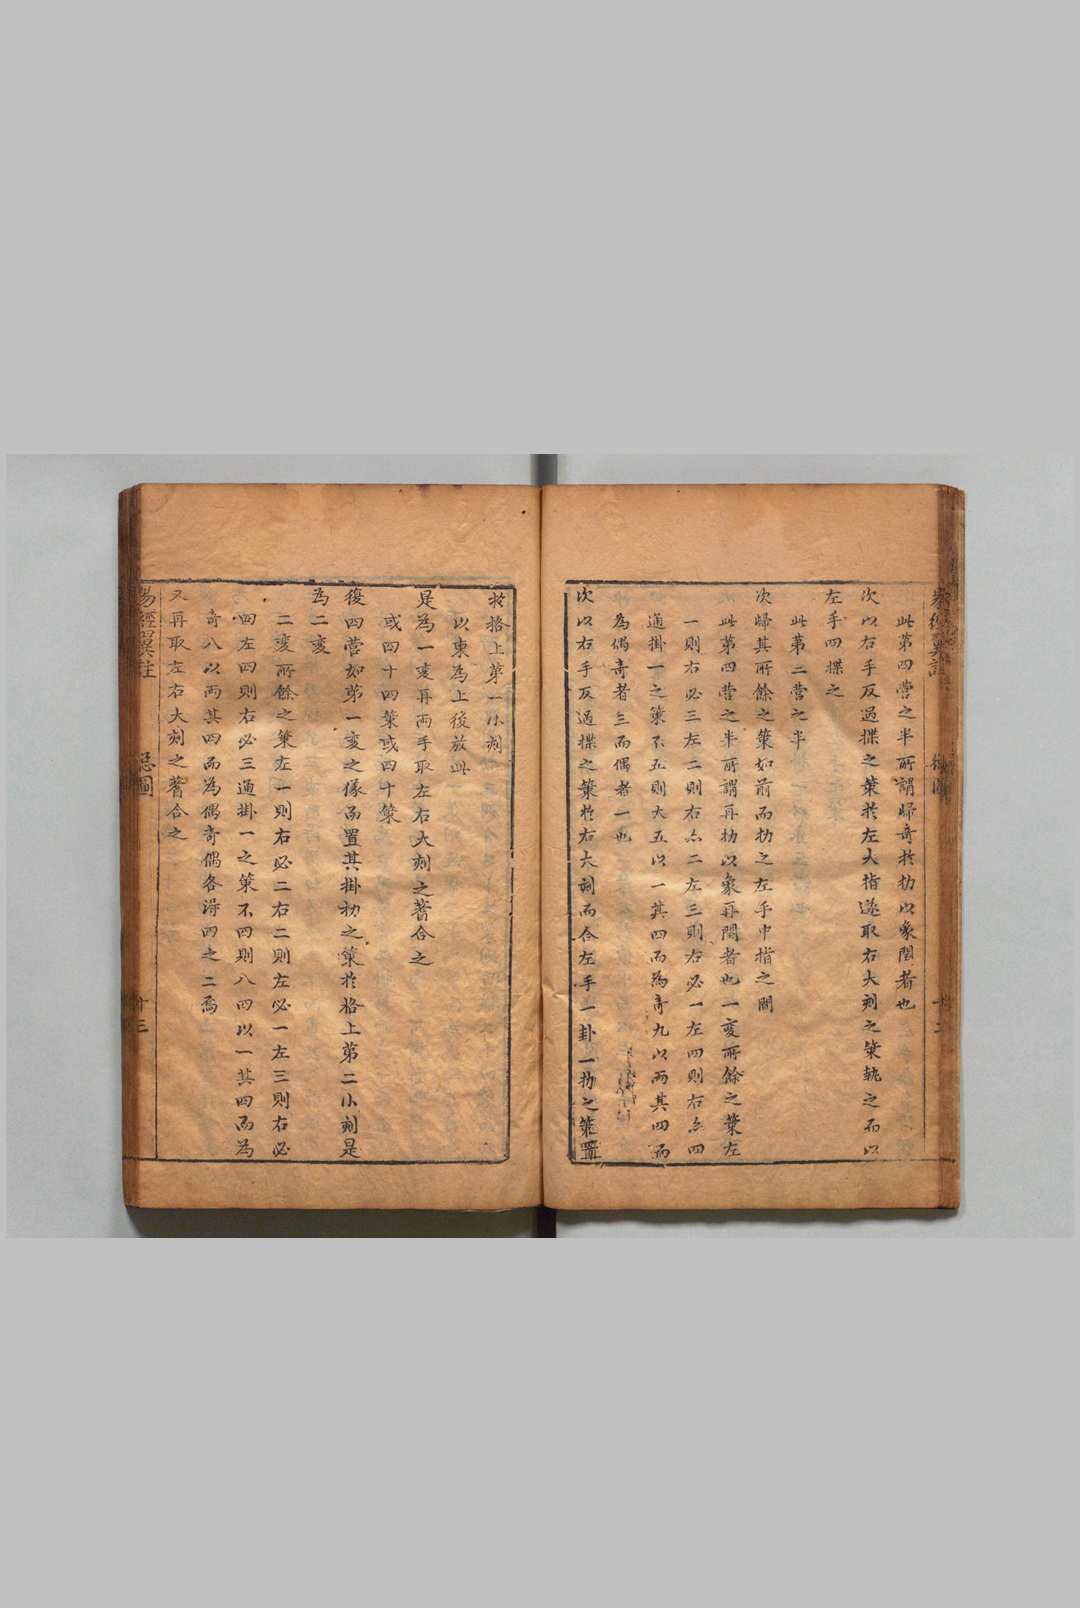 此第四營之半所謂歸奇於扐以象閏者也
次以右手反過揲之策於左大指遂取右大刻之策執之而以
左手四揲之
此第二營之半
次歸其所餘之策如前而扐之左手中指之間
此第四營之半所謂再扐以象再閏者也一変所餘之策左
一則右必三左二則右亦二左三則右必一左四則右亦四
通掛一之策不五則大五以一其四而為奇九以两其四而
為偶奇者三而偶者一也
次以右手反過揲之策於右大刻而合左手一卦一扐之策置
於格上第一小刻
以東為上後放此
是為一変再两手取左右大刻之蓍合之
或四十四策或四十策
復四營如第一変之儀而置其掛扐之策於格上第二小刻是
為二変
二変所餘之策左一則右必二右二則左必一左三則右必
四左四則右必三通掛一之策不四則八四以一其四而為
奇八以两其四而為偶奇偶各淂四之二焉
又再取左右大刻之蓍合之
易經翼註
总圖
十三